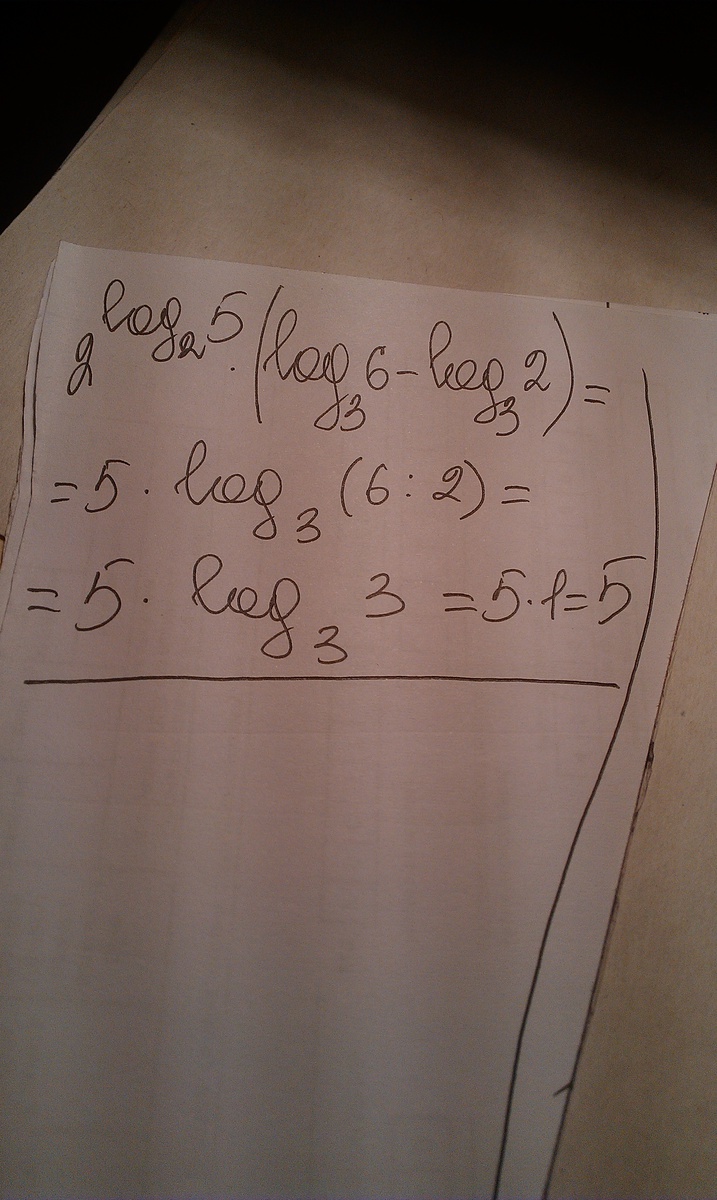 2^{log_2 5} · (log_3 6 - log_3 2) =
= 5 · log_3 (6 : 2) =
= 5 · log_3 3 = 5 · 1 = 5